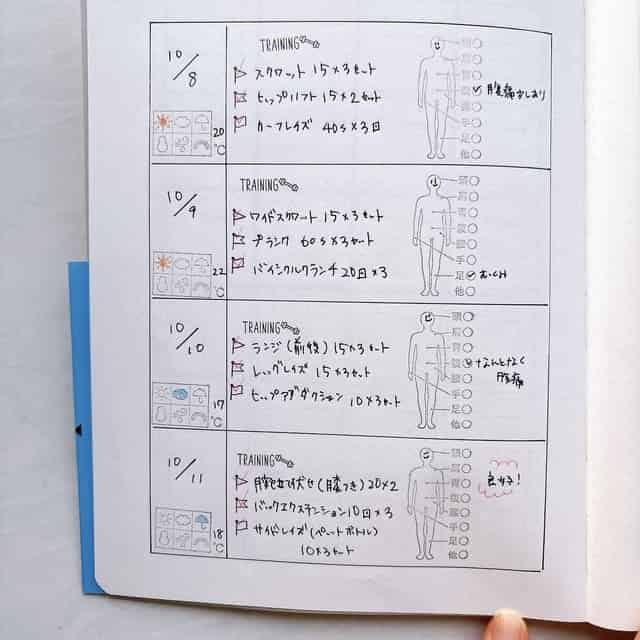 10/8
20℃
TRAINING
スクワット 15×3セット
ヒップリフト 15×2セット
カーフレイズ 40s×3回
頭
肩
背
腹
腰
手
足
他
腹痛少しあり
10/9
22℃
TRAINING
ワイドスクワット 15×3セット
プランク 60s×3セット
バイシクルクランチ20回×3
頭
肩
背
腹
腰
手
足
他
10/10
17℃
TRAINING
ランジ(前後) 15×3セット
レッグレイズ 15×3セット
ヒップアブダクション 10×3セット
頭
肩
背
腹
腰
手
足
他
なんとなく
腹痛
10/11
18℃
TRAINING
腕立て伏せ(膝つき)20×2
バックエクステンション10回×3
サイドレイズ(ペットボトル)
10×3セット
頭
肩
背
腹
腰
手
足
他
良好!